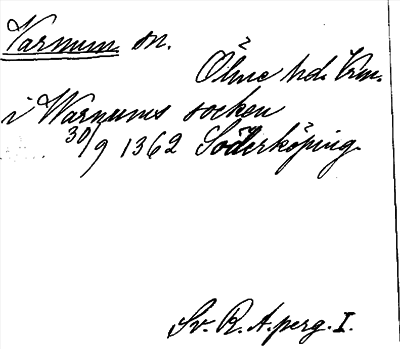 Varnum sn.
Ölme hd. Vrm.
i Warnums socken
30/9 1362 Söderköping.
Sv. R. A. perg. I.